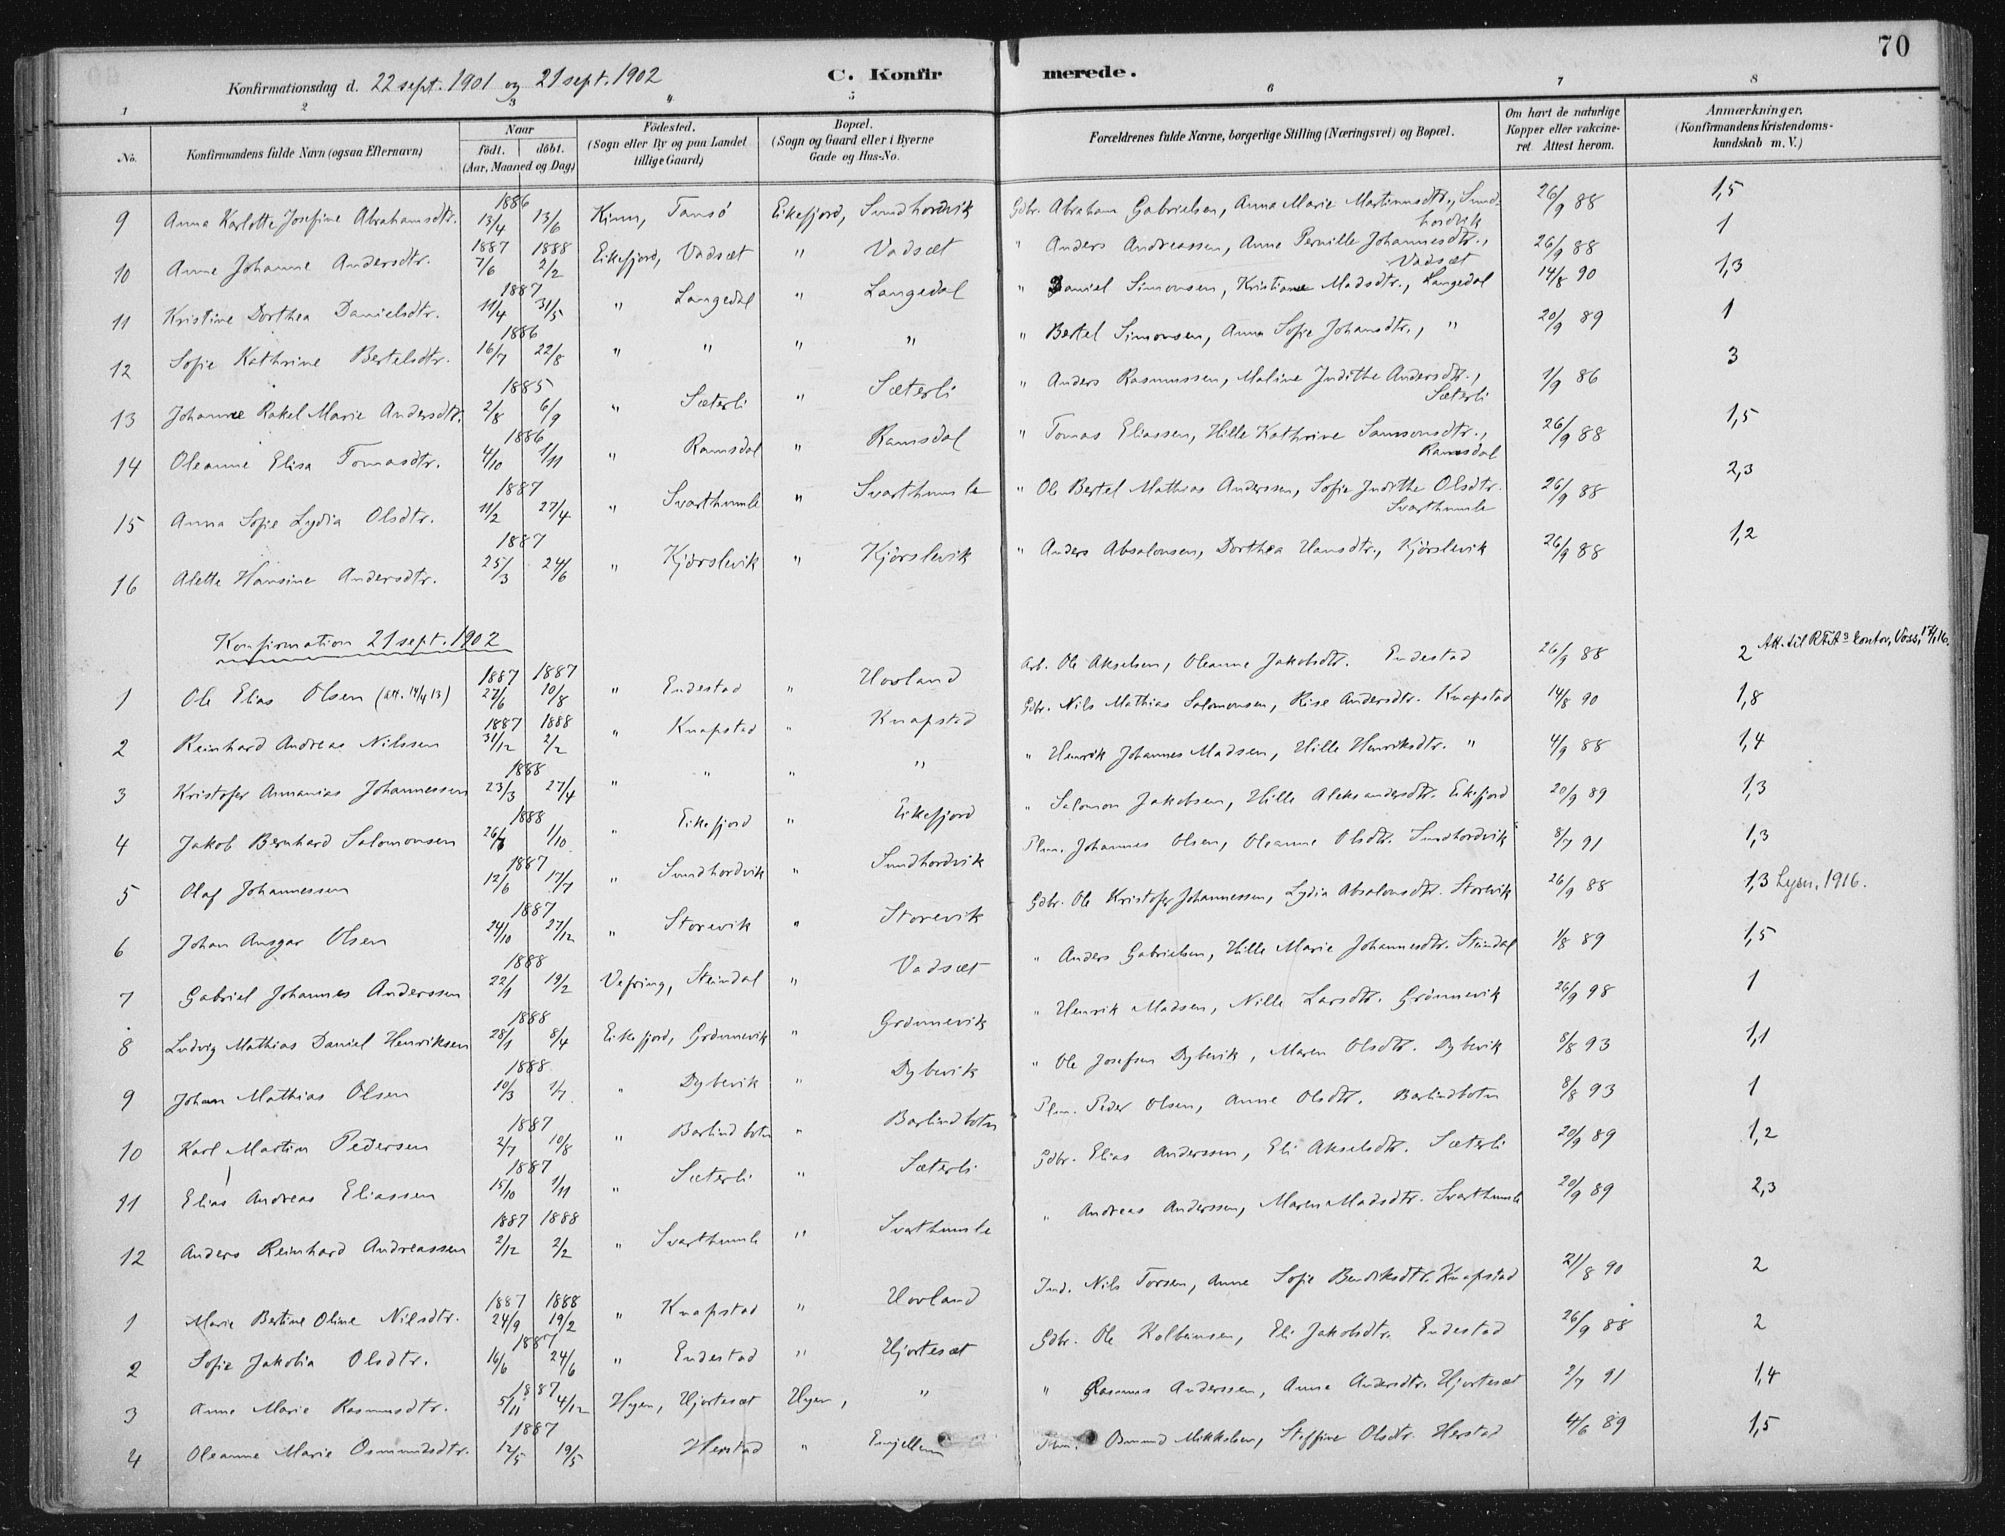 70
Konfirmationsdag d. 22 sept. 1901 og 21 sept. 1902 C. Konfirmerede.
1 2 3 " 5 6 7 8
No. Konfirmandens fulde Navn (ogsaa Efternavn) Naar födt. döbt. (Aar, Maaned og Dag) Födested. (Sogn eller By og paa Landet tillige Gaard) Bopæl. (Sogn og Gaard eller i Byerne Gade og Hus-No. Forældrenes fulde Navne, borgerlige Stilling (Næringsvei) og Bopæl. Om havt de naturlige Kopper eller vakcineret Attest herom. Anmærkninger. (Konfirmandens Kristendomskundskab m. V.)
9 Anna Karlotte Josefine Abrahamsdtr. 1886 13/4 13/6 Kinn, Tansö Eikefjord, Sundhordvik Gdbr. Abraham Gabrielsen, Anna Marie Martinusdtr., Sundhordvik 26/9 88 1,5
10 Anne Johanne Andersdtr. 1887 7/6 1888 2/2 Eikefjord, Vadsæt " Vadsæt " Anders Andreassen, Anne Pernille Johannesdtr., Vadsæt 26/9 88 1
11 Kristine Dorthea Danielsdtr. 1887 11/4 31/5 " Langedal " Langedal " Daniel Simonsen, Kristiane Madsdtr., Langedal 14/8 90 1,3
12 Sofie Kathrine Bertelsdtr. 1886 16/7 22/8 " " " " " Bertel Simonsen, Anna Sofie Johansdtr., " 20/9 89 1
13 Johanne Rakel Marie Andersdtr. 1885 2/8 6/9 " Sæterli " Sæterli " Anders Rasmussen, Maline Judithe Andersdtr., Sæterli 1/9 86 3
14 Oleanne Elisa Tomasdtr. 1886 4/10 1/11 " Ramsdal " Ramsdal " Tomas Eliassen, Hille Kathrine Samsonsdtr., Ramsdal 26/9 88 1,5
15 Anna Sofie Lydia Olsdtr. 1887 11/2 27/4 " Svarthumle " Svarthumle " Ole Bertel Mathias Anderssen, Sofie Judithe Olsdtr. Svarthumle 26/9 88 2,3
16 Alette Hansine Andersdtr. 1887 25/3 24/6 " Kjörslevik " Kjörslevik " Anders Absalonsen, Dorthea Hansdtr., Kjörslevik 26/9 88 1,2
Konfirmation 21 sept. 1902
1 Ole Elias Olsen (att. 14/4 13) 1887 27/6 1887 10/8 " Endestad " Hovland Arb. Ole Akselsen, Oleanne Jakobsdtr. Endestad 26/9 88 2 Att. til kontor, Voss, 16.
2 Reinhard Andreas Nilssen 1887 31/12 1888 2/2 " Knapstad " Knapstad Gdbr. Nils Mathias Salomonsen, Rise Andersdtr. Knapstad 14/8 90 1,8
3 Kristofer Annanias Johannessen 1888 23/3 27/4 " " " " " Henrik Johannes Madsen, Hille Henriksdtr. " 4/9 88 1,4
4 Jakob Bernhard Salomonsen 1888 26/8 1/10 " Eikefjord " Eikefjord " Salomon Jakobsen, Hille Aleksandersdtr. Eikefjord 20/9 89 1,3
5 Olaf Johannessen 1887 12/6 17/7 " Sundhordvik " Sundhordvik Plm. Johannes Olsen, Oleanne Olsdtr. Sundhordvik 8/7 91 1,3
6 Johan Ansgar Olsen 1887 24/10 27/12 " Storevik " Storevik Gdbr. Ole Kristofer Johannessen, Lydia Absalonsdtr. Storevik 26/9 88 1,3 Lysn. 1916.
7 Gabriel Johannes Anderssen 1888 22/1 19/2 Vefring, Steindal " Vadsæt " Anders Gabrielsen, Hille Marie Johannesdtr. Steindal 1/8 89 1,5
8 Ludvig Mathias Daniel Henriksen 1888 28/1 8/4 Eikefjord, Grönnevik " Grönnevik " Henrik Madsen, Nille Larsdtr. Grönnevik 26/9 98 1
9 Johan Mathias Olsen 1888 10/3 1/7 " Dybevik " Dybevik " Ole Josefsen Dybevik, Maren Olsdtr. Dybevik 8/8 93 1,1
10 Karl Martin Pedersen 1887 2/7 10/8 " Barlindbotn " Barlindbotn Plm. Peder Olsen, Anne Olsdtr. Barlindbotn 8/8 93 1
11 Elias Andreas Eliassen 1887 15/10 1/11 " Sæterli " Sæterli Gdbr. Elias Anderssen, Eli Akselsdtr. Sæterli 20/9 89 1,2
12 Anders Reinhard Andreassen 1887 2/12 1888 2/2 " Svarthumle " Svarthumle " Andreas Anderssen, Maren Madsdtr. Svarthumle 20/9 89 2,3
1 Marie Bertine Oline Nilsdtr. 1887 24/9 1888 19/2 " Knapstad " Hovland Ind. Nils Torsen, Anne Sofie Bendiksdtr. Knapstad 21/8 90 2
2 Sofie Jakobia Olsdtr. 1887 16/6 24/6 " Endestad " Hjortesæt Gdbr. Ole Kolbeinsen, Eli Jakobsdtr. Endestad 26/9 88 2
3 Anne Marie Rasmusdtr. 1887 5/11 4/12 Hyen, Hjortesæt Hyen, " " Rasmus Anderssen, Anna Andersdtr. Hjortesæt 2/7 91 1,4
4 Oleanne Marie Osmundsdtr. 1887 12/5 19/5 Herstad " Mikkelsen, Steffine Olsdtr. Herstad 4/6 89 1,5